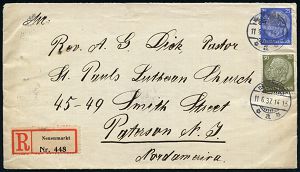 Rev. A. G. Dick Pastor
St. Pauls Lutheran Church
45-49 Smith Street
Paterson N. J.
Nordamerica
R
Neuenmarkt
Nr. 448
11.6.37.14-15